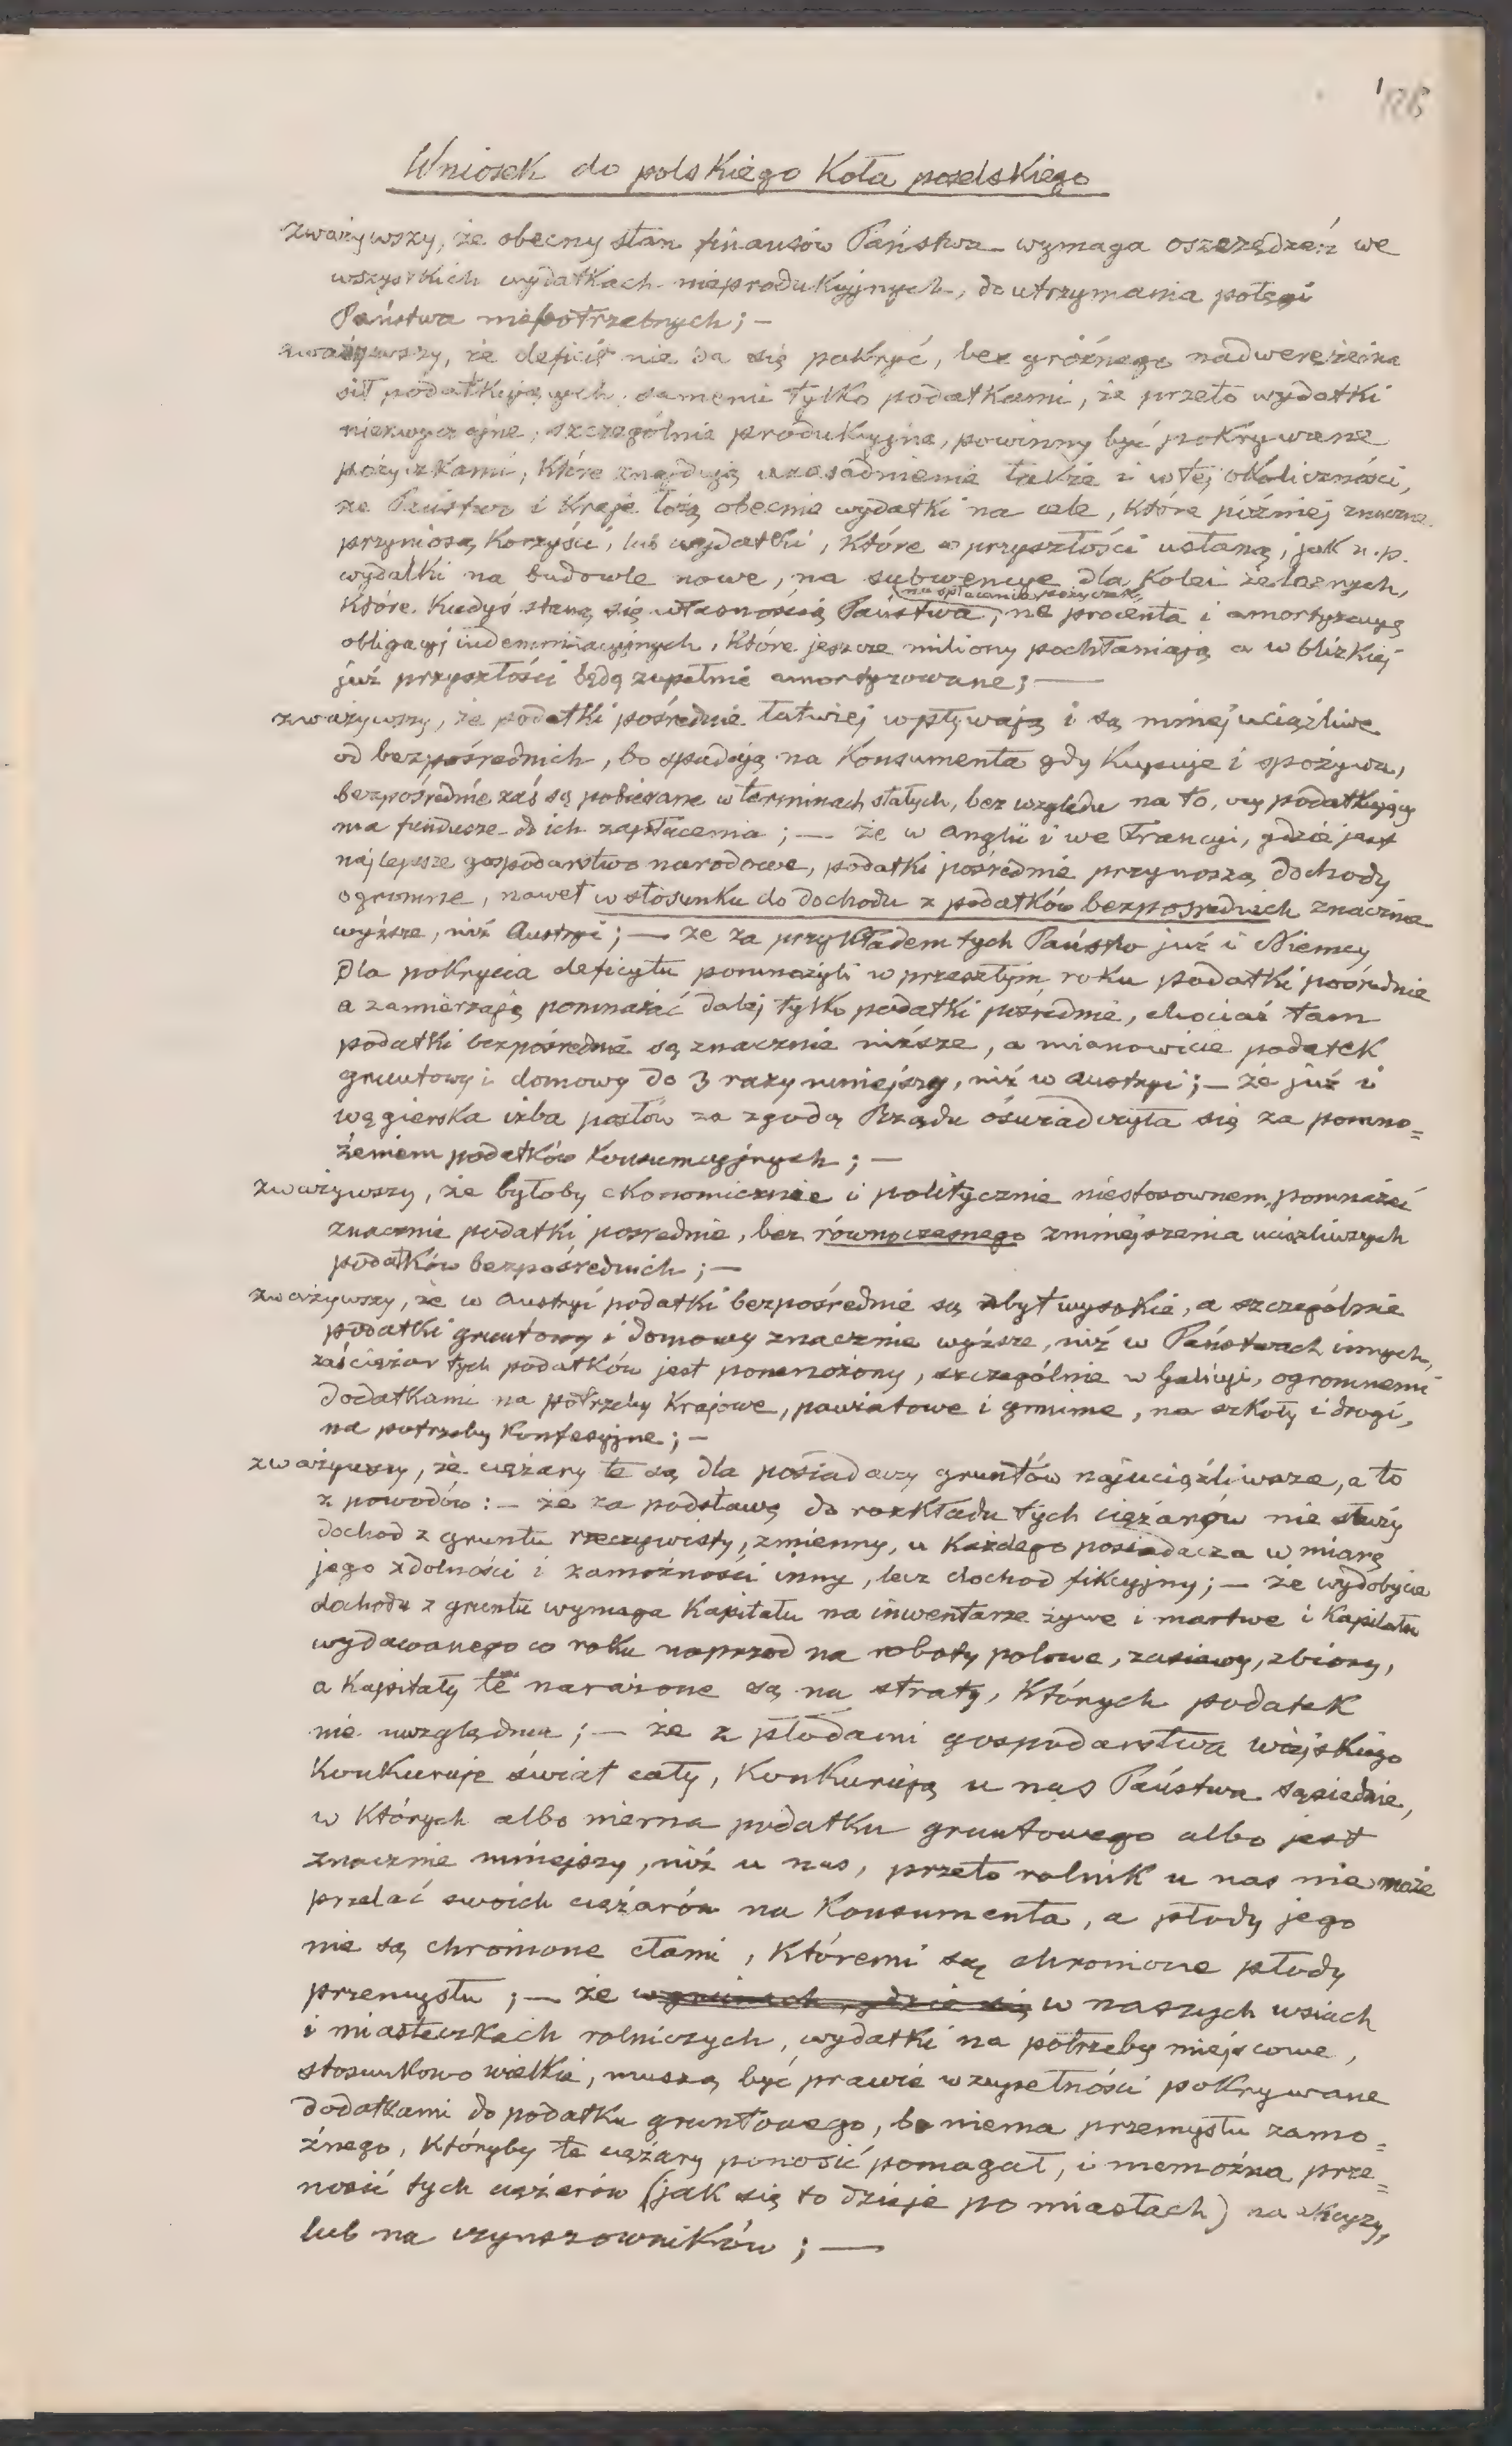 Wniosek do polskiego Koła poselskiego
zważywszy, że obecny stan finansów Państwa wymaga oszczędzeń we
wszystkich wydatkach nieprodukcyjnych, do utrzymania potęgi
Państwa niepotrzebnych; —
zważywszy, że deficit nie da się pokryć, bez groźnego nadwerężenia
sił podatkujących, samemi tylko podatkami, że przeto wydatki
niezwyczajne, szczególnie produkcyjne, powinny być pokrywane
pożyczkami, które znajdują uzasadnienie także i w tej okoliczności,
że Państwo i Kraje łożą obecnie wydatki na cele, które później znaczne
przyniosą korzyści, lub wydatki, które w przyszłości ustaną, jak n.p.
wydatki na budowle nowe, na subwencye dla Kolei żelaznych,
na spłacenie pożyczek,
które kiedyś staną się własnością Państwa, na procenta i amortyzacyę
obligacyj indemnizacyjnych, które jeszcze miliony pochłaniają a w blizkiej
już przyszłości będą zupełnie amortyzowane; —
zważywszy, że podatki pośrednie łatwiej wpływają i są mniej uciążliwe
od bezpośrednich, bo spadają na Konsumenta gdy Kupuje i spożywa,
bezpośrednie zaś są pobierane w terminach stałych, bez względu na to, czy podatkujący
ma fundusze do ich zapłacenia; — że w Anglii i we Francyi, gdzie jest
najlepsze gospodarstwo narodowe, podatki pośrednie przynoszą dochody
ogromne, nawet w stosunku do dochodu z podatków bezpośrednich znacznie
wyższe, niż Austryi; — że za przykładem tych Państw już i Niemcy
dla pokrycia deficytu pomnożyli w przeszłym roku podatki pośrednie
a zamierzają pomnażać dalej tylko podatki pośrednie, chociaż tam
podatki bezpośrednie są znacznie niższe, a mianowicie podatek
gruntowy i domowy do 3 razy mniejszy, niż w Austryi; — że już i
węgierska izba posłów za zgodą Rządu oświadczyła się za pomno=
żeniem podatków konsumcyjnych; —
zważywszy, że byłoby ekonomicznie i politycznie niestosownem, pomnażać
znacznie podatki pośrednie, bez równoczesnego zmniejszenia uciążliwszych
podatków bezpośrednich; —
zważywszy, że w Austryi podatki bezpośrednie są zbyt wysokie, a szczególnie
podatki gruntowy i domowy znacznie wyższe, niż w Państwach innych,
zaś ciężar tych podatków jest pomnożony, szczególnie w Galicyi, ogromnemi
dodatkami na potrzeby Krajowe, powiatowe i gminne, na szkoły i drogi,
na potrzeby Konfesyjne; —
zważywszy, że ciężary te są dla posiadaczy gruntów najuciążliwsze, a to
z powodów: — że za podstawę do rozkładu tych ciężarów nie służy
dochod z gruntu rzeczywisty, zmienny, u Każdego posiadacza w miarę
jego zdolności i zamożności inny, lecz dochod fikcyjny; — że wydobycie
dochodu z gruntu wymaga Kapitału na inwentarze żywe i martwe i Kapitału
wydawanego co roku naprzod na roboty polowe, zasiewy, zbiory,
a Kapitały te narażone są na straty, Których podatek
nie uwzględnia; — że z płodami gospodarstwa wiejskiego
Konkuruje świat cały, Konkurują u nas Państwa sąsiednie,
w Których albo niema podatku gruntowego albo jest
znacznie mniejszy, niż u nas, przeto rolnik u nas nie może
przelać swoich ciężarów na Konsumenta, a płody jego
nie są chronione cłami, Któremi są chronione płody
przemysłu; — że w gminach, gdzie się w naszych wsiach
i miasteczkach rolniczych, wydatki na potrzeby miejscowe,
stosunkowo wielkie, muszą być prawie w zupełności pokrywane
dodatkami do podatku gruntowego, bo niema przemysłu zamo=
żnego, Któryby te ciężary ponosić pomagał, i niemożna prze=
nosić tych ciężarów (jak się to dzieje po miastach) na
lub na czynszowników; —